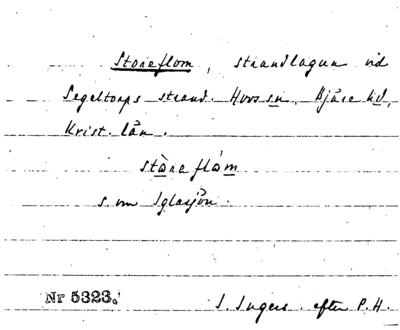 Storeflom, strandlagun vid
Segeltorps strand. Hovs sn, Bjäre hd,
Krist. län.
stòrəflóm
s. om Iglasjön.
Nr 5323.
S. Ingers efter P.H.